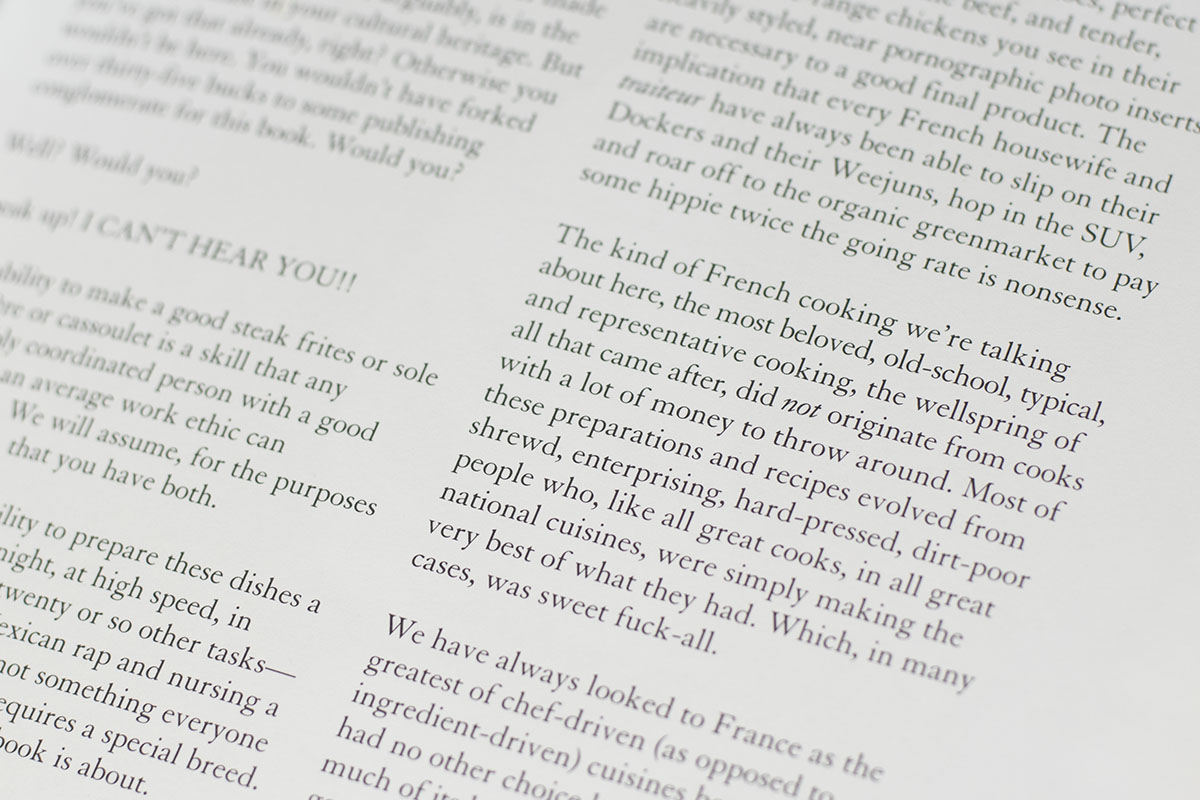 made
arguably, is in the
in your cultural heritage. But
you've got that already, right? Otherwise you
wouldn't be here. You wouldn't have forked
over thirty-five bucks to some publishing
conglomerate for this book. Would you?
Well? Would you?
up! I CAN'T HEAR YOU!!
ability to make a good steak frites or sole
or cassoulet is a skill that any
coordinated person with a good
an average work ethic can
We will assume, for the purposes
that you have both.
ility to prepare these dishes a
night, at high speed, in
twenty or so other tasks—
exican rap and nursing a
not something everyone
equires a special breed.
book is about.
perfect
beef, and tender,
range chickens you see in their
heavily styled, near pornographic photo inserts
are necessary to a good final product. The
implication that every French housewife and
traiteur have always been able to slip on their
Dockers and their Weejuns, hop in the SUV,
and roar off to the organic greenmarket to pay
some hippie twice the going rate is nonsense.
The kind of French cooking we're talking
about here, the most beloved, old-school, typical,
and representative cooking, the wellspring of
all that came after, did not originate from cooks
with a lot of money to throw around. Most of
these preparations and recipes evolved from
shrewd, enterprising, hard-pressed, dirt-poor
people who, like all great cooks, in all great
national cuisines, were simply making the
very best of what they had. Which, in many
cases, was sweet fuck-all.
We have always looked to France as the
greatest of chef-driven (as opposed to
ingredient-driven) cuisines
had no other choice
much of